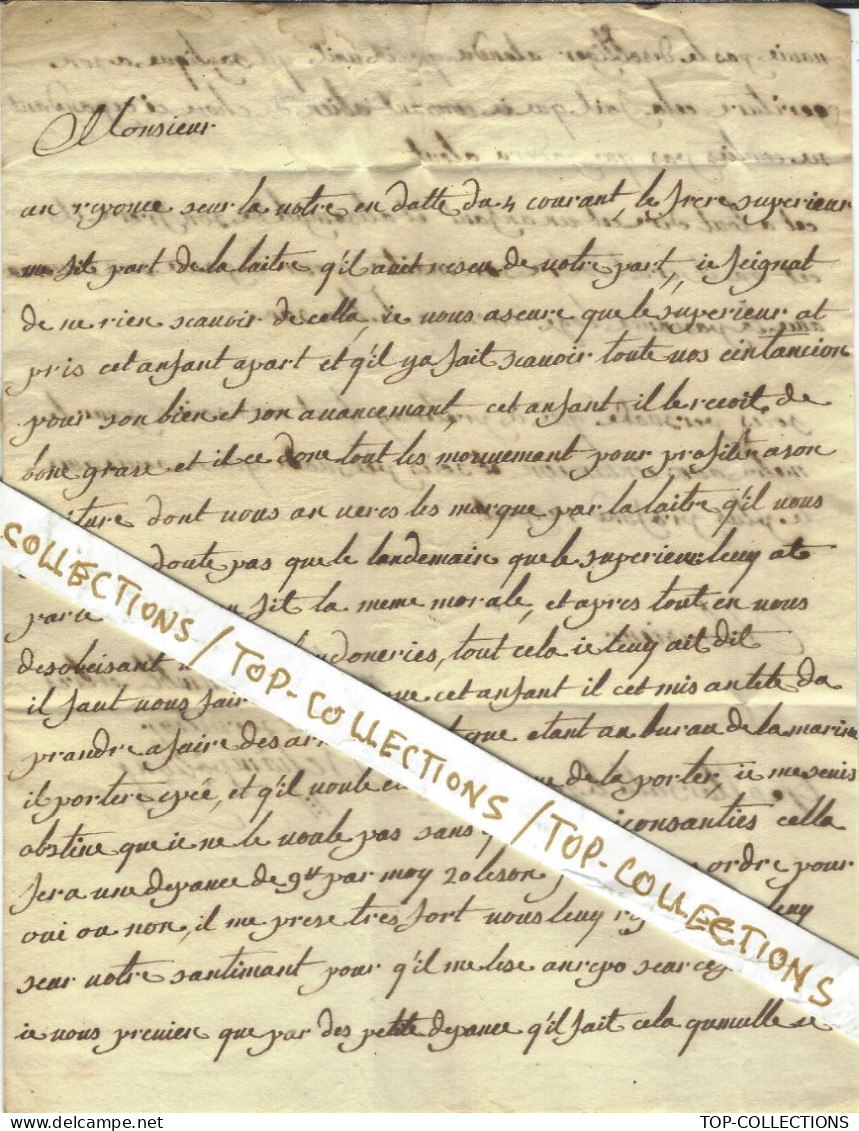 Monsieur
an reponce seur la votre en datte du 4 courant, le frere superieur
me fit part de la laitre q'il avit reseu de votre part, ie feignat
de ne rien scavoir de cella, ie vous aseure que le superieur at
pris cet anfant apart et q'il ya fait scavoir toute vos eintancion
pour son bien et son avancemant, cet anfant il le recoit de
bone grase et il ce done tout les mouvemant pour profiter a son
iture dont vous an veres les marque par la laitre q'il vous
doute pas que le landemain que le superieur luy at
parle fit la meme morale, et apres tout en vous
desobeisant doneries, tout cela ie luy ait dit
il faut vous fair que cet anfant il cet mis an tete da
prandre a faire des ar que etant au bureau de la marine
il porter epée, et q'il voule en de la porter, ie me seuis
obstine que ie ne le voule pas sans consanties cella
fera une depance de 9# par moy 20 leson ordre pour
oui ou non, il me prese tres fort vous luy luy
seur votre santimant pour q'il me lese an repo seur
ie vous previen que par des petite depance q'il fait cela qumulle se
COLLECTIONS / TOP-COLLECTIONS / TOP-COLLECTIONS
TOP-COLLECTIONS